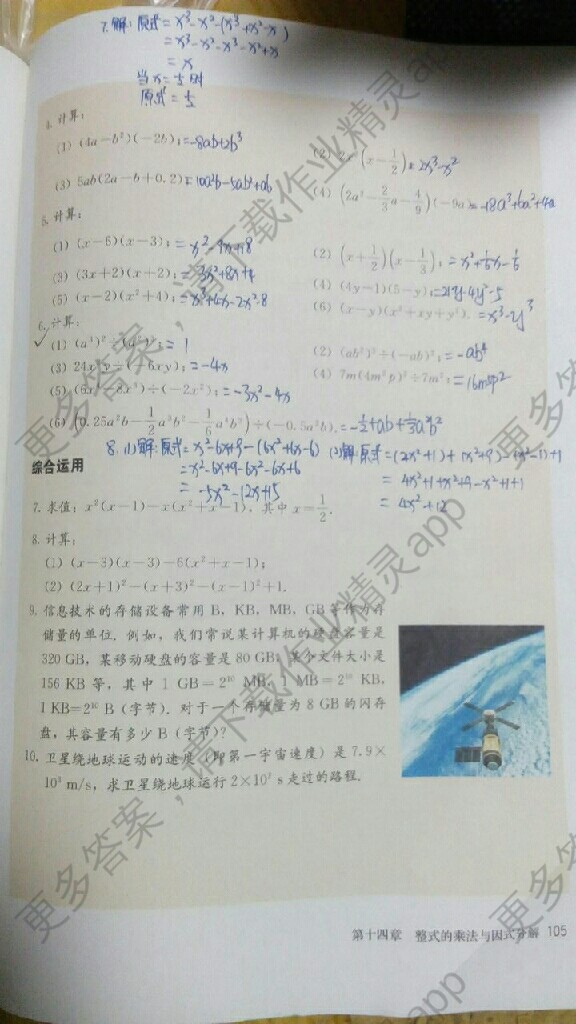 7. 解: 原式 = x³-x²-(x³+x²-x)
= x³-x²-x³-x²+x
= x
当 x = 1/2 时
原式 = 1/2
4. 计算:
(1) (4a-b²)(-2b); = -8ab+2b³
(2) 2x²(x-1/2); = 2x³-x²
(3) 5ab(2a-b+0.2); = 10a²b-5ab²+ab
(4) (2a²-2/3a-4/9)(-9a). = -18a³+6a²+4a
5. 计算:
(1) (x-6)(x-3); = x²-9x+18
(2) (x+1/2)(x-1/3); = x²+1/6x-1/6
(3) (3x+2)(x+2); = 3x²+8x+4
(4) (4y-1)(5-y); = 21y-4y²-5
(5) (x-2)(x²+4); = x³+4x-2x²-8
(6) (x-y)(x²+xy+y²). = x³-y³
6. 计算:
= 1
(2) (ab²)³÷(-ab)²; = -ab⁴
= -4x
(4) 7m(4m²p)²÷7m²; = 16m³p²
÷(-2x²); = -3x²-4x
(6) (0.25a²b-1/2a³b²-1/6a⁴b³)÷(-0.5a²b). = -1/2+ab+1/3a²b²
8. (1) 解: 原式 = x²-6x+9-(6x²+6x-6)
= x²-6x+9-6x²-6x+6
= -5x²-12x+15
(2) 解: 原式 = (2x²+1)+(x²+9)-(x²-1)+1
= 4x²+1+x²+9-x²+1+1
= 4x²+12
综合运用
7. 求值: x²(x-1)-x(x²+x-1), 其中 x=1/2.
8. 计算:
(1) (x-3)(x-3)-6(x²+x-1);
(2) (2x+1)²-(x+3)²-(x-1)²+1.
9. 信息技术的存储设备常用 B, KB, MB, GB 等作为存
储量的单位. 例如, 我们常说某计算机的硬盘容量是
320 GB, 某移动硬盘的容量是 80 GB, 某个文件大小是
156 KB 等, 其中 1 GB=2¹⁰ MB, 1 MB=2¹⁰ KB,
1 KB=2¹⁰ B (字节). 对于一个存储量为 8 GB 的闪存
盘, 其容量有多少 B (字节)?
10. 卫星绕地球运动的速度 (即第一宇宙速度) 是 7.9×
10³ m/s, 求卫星绕地球运行 2×10² s 走过的路程.
第十四章 整式的乘法与因式分解 105
更多答案,请下载作业精灵app
更多答案,请下载作业精灵app
更多答案